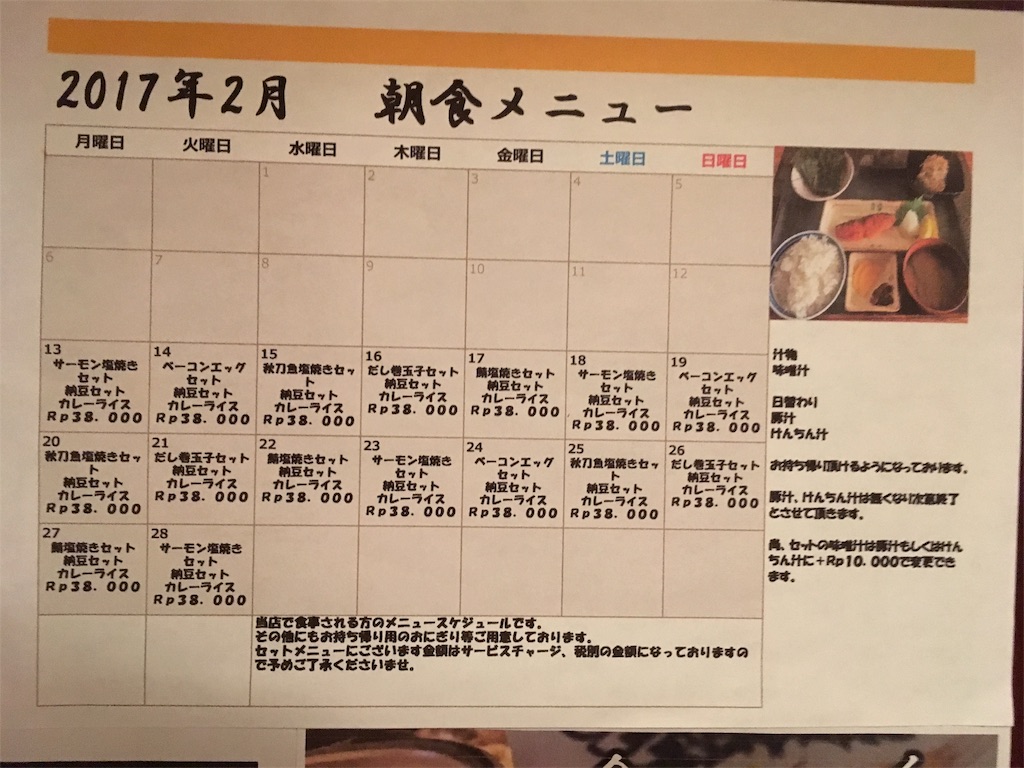 2017年2月 朝食メニュー
月曜日 火曜日 水曜日 木曜日 金曜日 土曜日 日曜日
1 2 3 4 5
6 7 8 9 10 11 12
13
サーモン塩焼き
セット
納豆セット
カレーライス
Rp38．000
14
ベーコンエッグ
セット
納豆セット
カレーライス
Rp38．000
15
秋刀魚塩焼きセッ
ト
納豆セット
カレーライス
Rp38．000
16
だし巻玉子セット
納豆セット
カレーライス
Rp38．000
17
鯖塩焼きセット
納豆セット
カレーライス
Rp38．000
18
サーモン塩焼き
セット
納豆セット
カレーライス
Rp38．000
19
ベーコンエッグ
セット
納豆セット
カレーライス
Rp38．000
20
秋刀魚塩焼きセッ
ト
納豆セット
カレーライス
Rp38．000
21
だし巻玉子セット
納豆セット
カレーライス
Rp38．000
22
鯖塩焼きセット
納豆セット
カレーライス
Rp38．000
23
サーモン塩焼き
セット
納豆セット
カレーライス
Rp38．000
24
ベーコンエッグ
セット
納豆セット
カレーライス
Rp38．000
25
秋刀魚塩焼きセッ
ト
納豆セット
カレーライス
Rp38．000
26
だし巻玉子セット
納豆セット
カレーライス
Rp38．000
27
鯖塩焼きセット
納豆セット
カレーライス
Rp38．000
28
サーモン塩焼き
セット
納豆セット
カレーライス
Rp38．000
当店で食事される方のメニュースケジュールです。
その他にもお持ち帰り用のおにぎり等ご用意しております。
セットメニューにございます金額はサービスチャージ、税別の金額になっておりますの
で予めご了承くださいませ。
汁物
味噌汁
日替わり
豚汁
けんちん汁
お持ち帰り頂けるようになっております。
豚汁、けんちん汁は無くなり次第終了
とさせて頂きます。
尚、セットの味噌汁は豚汁もしくはけん
ちん汁に＋Rp10．000で変更でき
ます。